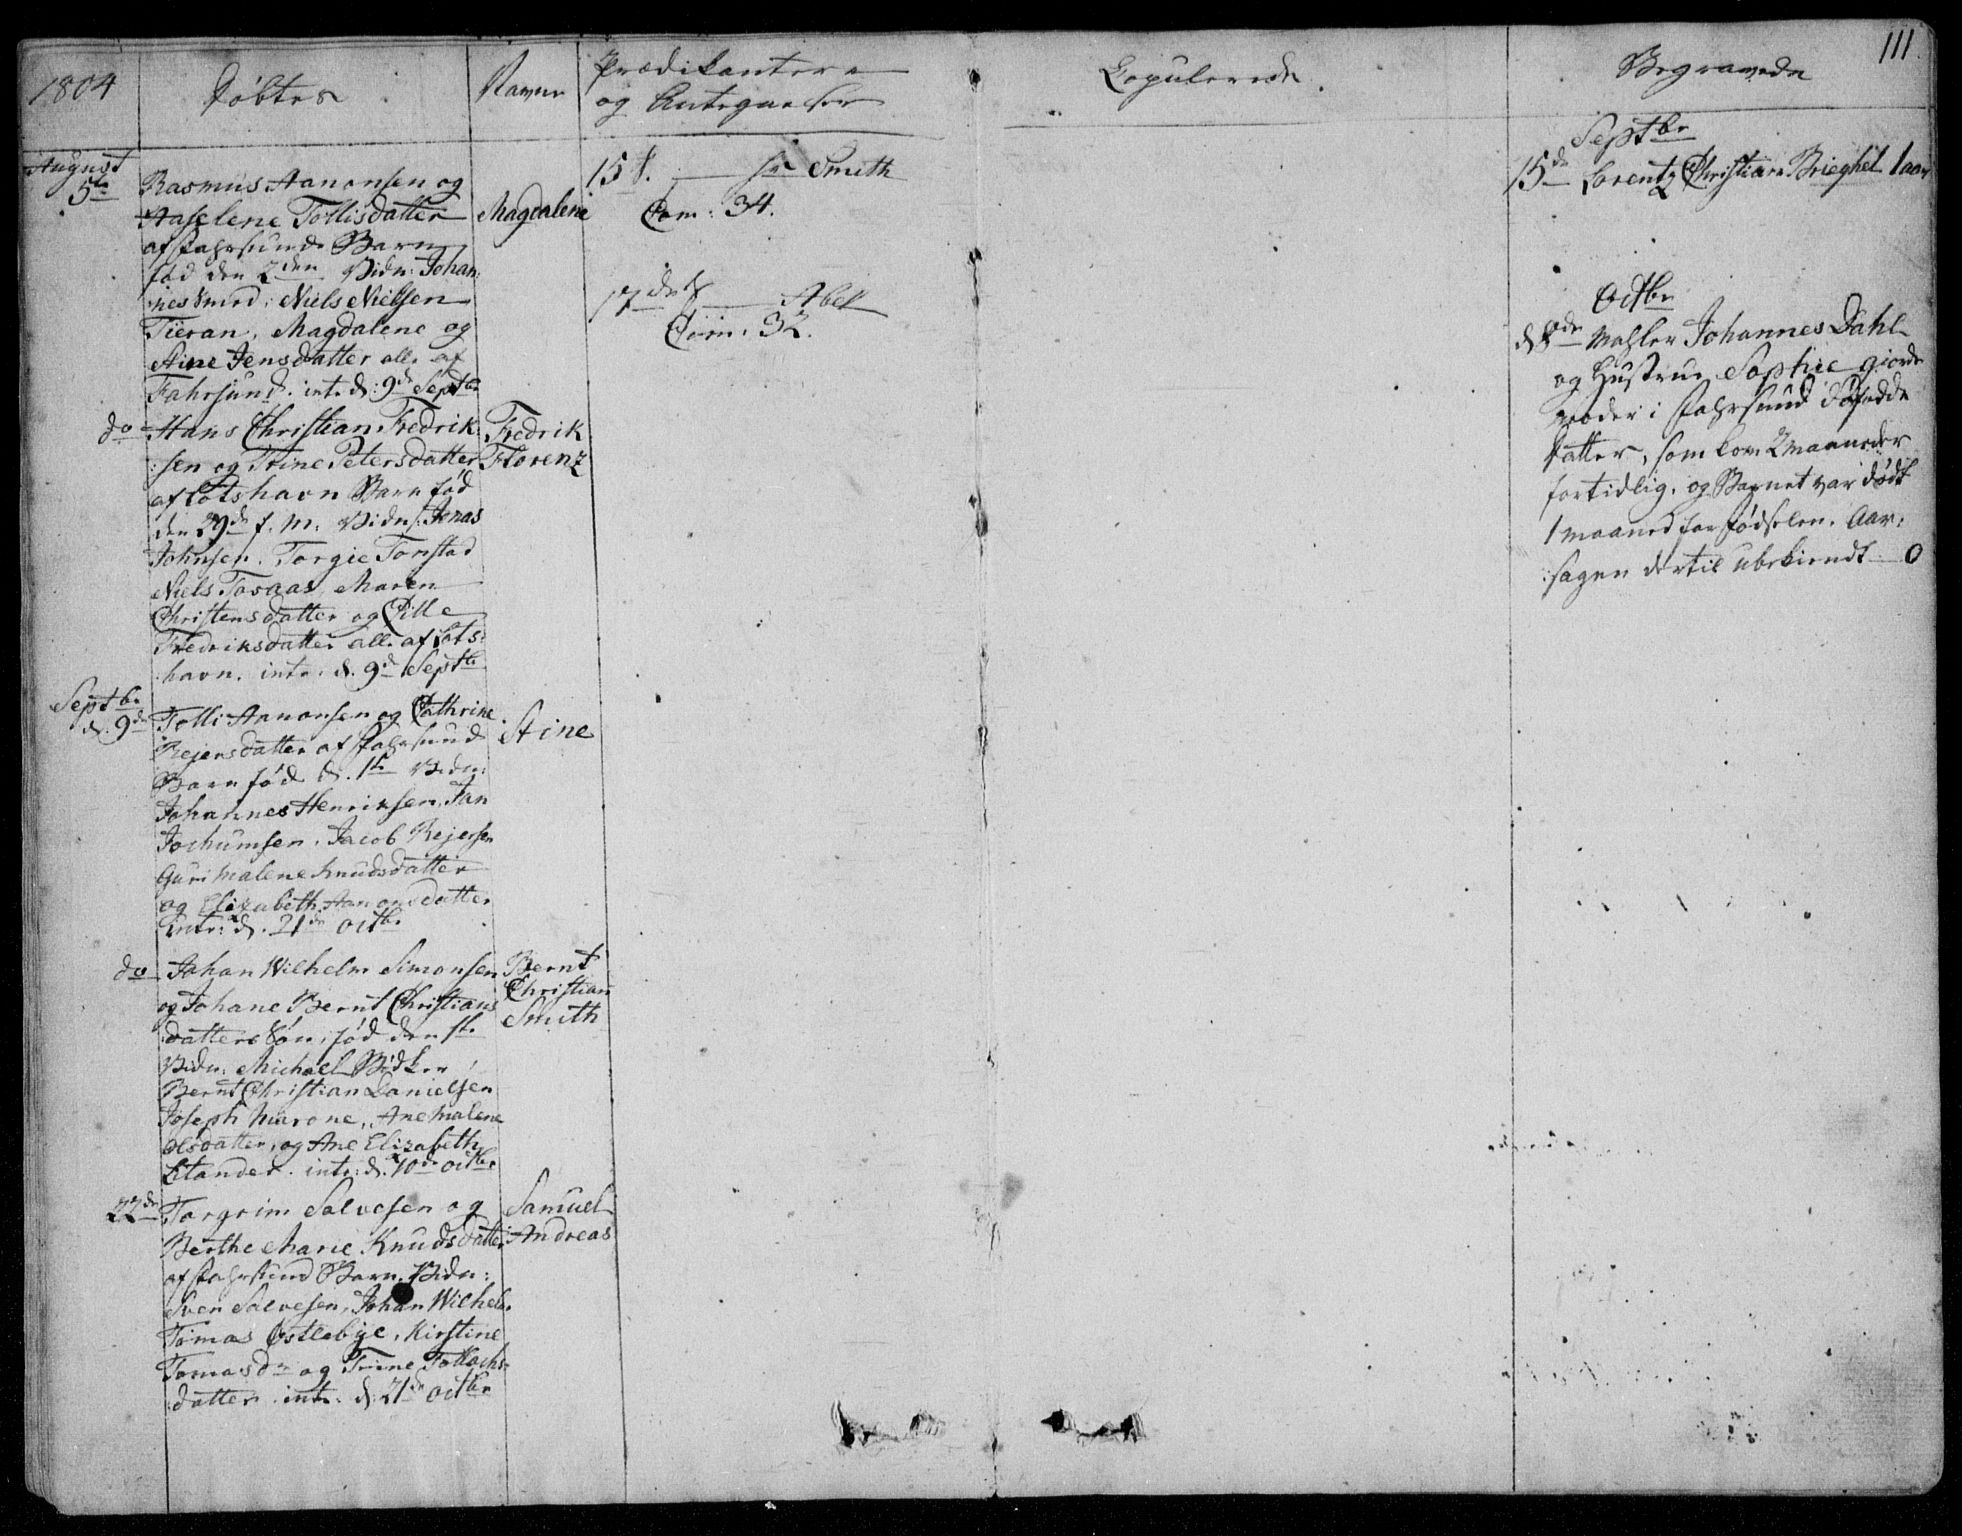 111.
1804
Døbte
Navne
Prædikantere
og Antegnelser
Copulerede
Begravede
August
5te
Rasmus Aanonsen og
Aaselene Tollisdatter
af Fahrsunds Barn
fød den 2den Vidn: Johan:
:nes Smed: Niels Nielsen
Tieran, Magdalene og
Stine Jensdatter alle af
Fahrsund. int. d: 9de Septbr
Magdalene
do
Hans Christian Fredrik:
:sen og Trine Petersdatter
af Lotshavn Barn fød
den 29de f. M. Vidn: Jonas
Johnsen. Torgie Tonstad
Niels Tovaas, Maren
Christensdatter og Pille
Fredriksdatter alle af Lots:
havn. int: d. 9de Septbr
Fredrik
Florenz
Septbr
d. 9de
Tolli Aanonsen og Cathrine
Rejersdatter af Fahrsund
Barn fød d. 1ste Vidn:
Johannes Henriksen, Jan
Jochumsen, Jacob Rejersen
Guri Malene Knudsdatter
og Elizabeth Aanonsdatter
intr: d. 21de Octbr
Stine
do
Johan Wilhelm Simonsen
og Johane Bernt Christians
datters Søn, fød den 1ste
Vidn: Michael Bødker
Bernt Christian Danielsen
Joseph Marone, Ane Malene
Olsdatter, og Ane Elizabeth
Stander. intr: d. 10de Octbr
Bernt
Christian
Smith
22de
Torgrim Salvesen og
Berthe Marie Knudsdatter
af Fahrsund Barn. Vidn:
Sven Salvesen, Johan Wilhelm
Tomas Østlebye, Kirstine
Tomasdr og Trine Tollachs:
datter. int: d. 21de Octbr
Samuel
Andreas
15 d. — hr Smith
Com: 34.
17de d — Abel
Com: 32.
Septbr
15de Lorentz Christian Brieghel 1 aar
Octbr
d 8de Mahler Johannes Dahl
og Hustrue Sophie giorde
moder i Fahrsund døfødde
datter, som kom 2 maaneder
fortidlig, og Barnet var dødt
1 maaned før fødselen. Aar:
:sagen dertil ubekiendt — 0